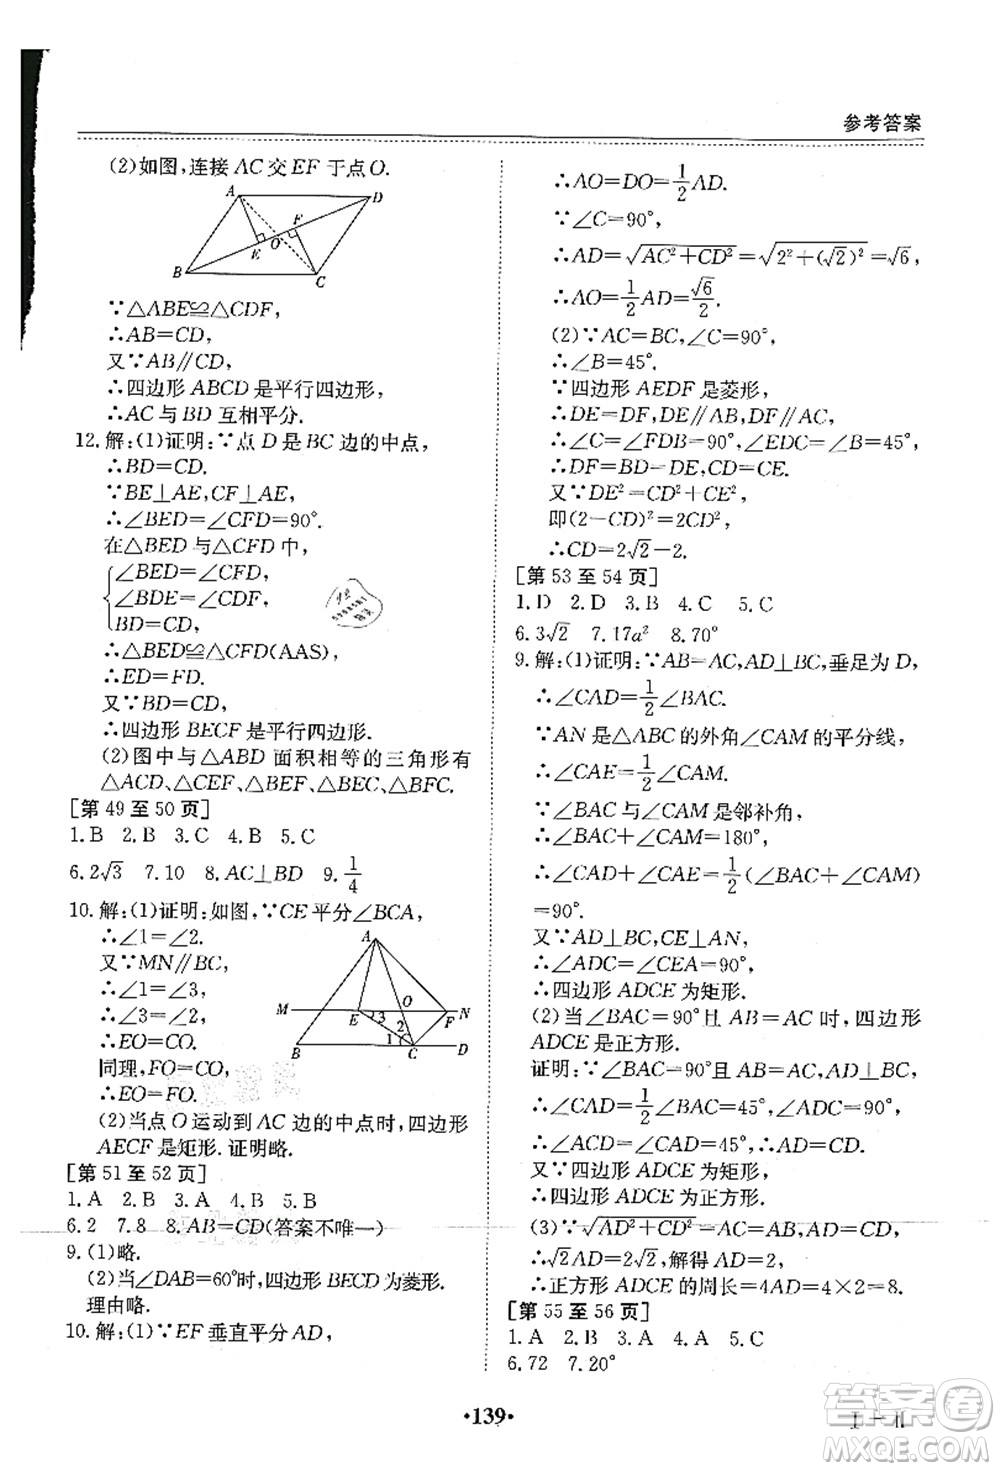 参考答案
(2)如图,连接 AC 交 EF 于点 O.
A
D
F
E
O
B
C
∵△ABE≌△CDF,
∴AB=CD,
又∵AB∥CD,
∴四边形 ABCD 是平行四边形,
∴AC 与 BD 互相平分.
12.解:(1)证明:∵点 D 是 BC 边的中点,
∴BD=CD.
∵BE⊥AE,CF⊥AE,
∴∠BED=∠CFD=90°.
在△BED 与△CFD 中,
∠BED=∠CFD,
∠BDE=∠CDF,
BD=CD,
∴△BED≌△CFD(AAS),
∴ED=FD.
又∵BD=CD,
∴四边形 BECF 是平行四边形.
(2)图中与△ABD 面积相等的三角形有
△ACD、△CEF、△BEF、△BEC、△BFC.
[第 49 至 50 页]
1.B 2.B 3.C 4.B 5.C
6.2√3 7.10 8.AC⊥BD 9.1/4
10.解:(1)证明:如图,∵CE 平分∠BCA,
∴∠1=∠2.
又∵MN∥BC,
∴∠1=∠3,
∴∠3=∠2,
∴EO=CO.
同理,FO=CO,
∴EO=FO.
A
M
E
3
O
F
N
2
B
1
C
D
(2)当点 O 运动到 AC 边的中点时,四边形
AECF 是矩形.证明略.
[第 51 至 52 页]
1.A 2.B 3.A 4.B 5.B
6.2 7.8 8.AB=CD(答案不唯一)
9.(1)略.
(2)当∠DAB=60°时,四边形 BECD 为菱形.
理由略.
10.解:(1)∵EF 垂直平分 AD,
∴AO=DO=1/2 AD.
∵∠C=90°,
∴AD=√(AC²+CD²)=√(2²+(√2)²)=√6,
∴AO=1/2 AD=√6/2.
(2)∵AC=BC,∠C=90°,
∴∠B=45°.
∵四边形 AEDF 是菱形,
∴DE=DF,DE∥AB,DF∥AC,
∴∠C=∠FDB=90°,∠EDC=∠B=45°,
∴DF=BD=DE,CD=CE.
又∵DE²=CD²+CE²,
即(2-CD)²=2CD²,
∴CD=2√2-2.
[第 53 至 54 页]
1.D 2.D 3.B 4.C 5.C
6.3√2 7.17a² 8.70°
9.解:(1)证明:∵AB=AC,AD⊥BC,垂足为 D,
∴∠CAD=1/2∠BAC.
∵AN 是△ABC 的外角∠CAM 的平分线,
∴∠CAE=1/2∠CAM.
∵∠BAC 与∠CAM 是邻补角,
∴∠BAC+∠CAM=180°,
∴∠CAD+∠CAE=1/2(∠BAC+∠CAM)
=90°.
又∵AD⊥BC,CE⊥AN,
∴∠ADC=∠CEA=90°,
∴四边形 ADCE 为矩形.
(2)当∠BAC=90°且 AB=AC 时,四边形
ADCE 是正方形.
证明:∵∠BAC=90°且 AB=AC,AD⊥BC,
∴∠CAD=1/2∠BAC=45°,∠ADC=90°,
∴∠ACD=∠CAD=45°,∴AD=CD.
又∵四边形 ADCE 是矩形,
∴四边形 ADCE 为正方形.
(3)∵√(AD²+CD²)=AC=AB=2√2,
∴√2AD=2√2,解得 AD=2,
∴正方形 ADCE 的周长=4AD=4×2=8.
[第 55 至 56 页]
1.A 2.B 3.A 4.C 5.A
6.72 7.20°
·139·
答案圈
MXQE.COM